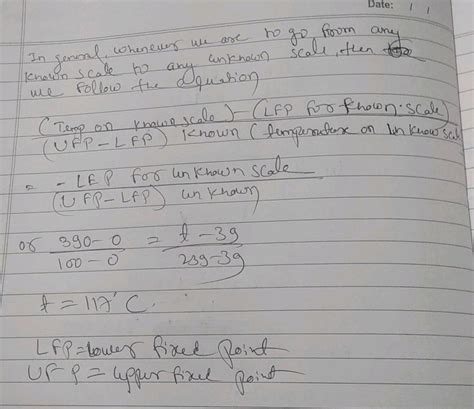 Date: / /
In general, whenever we are to go from any
known scale to any unknown scale, then
we follow the equation
(Temp on known scale) - (LFP for known scale)
(UFP - LFP) known (temperature on unknown scale
= - LFP for unknown scale
(UFP - LFP) unknown
or 390-0 = t-39
100-0 239-39
t = 117°C.
LFP = lower fixed point
UFP = upper fixed point